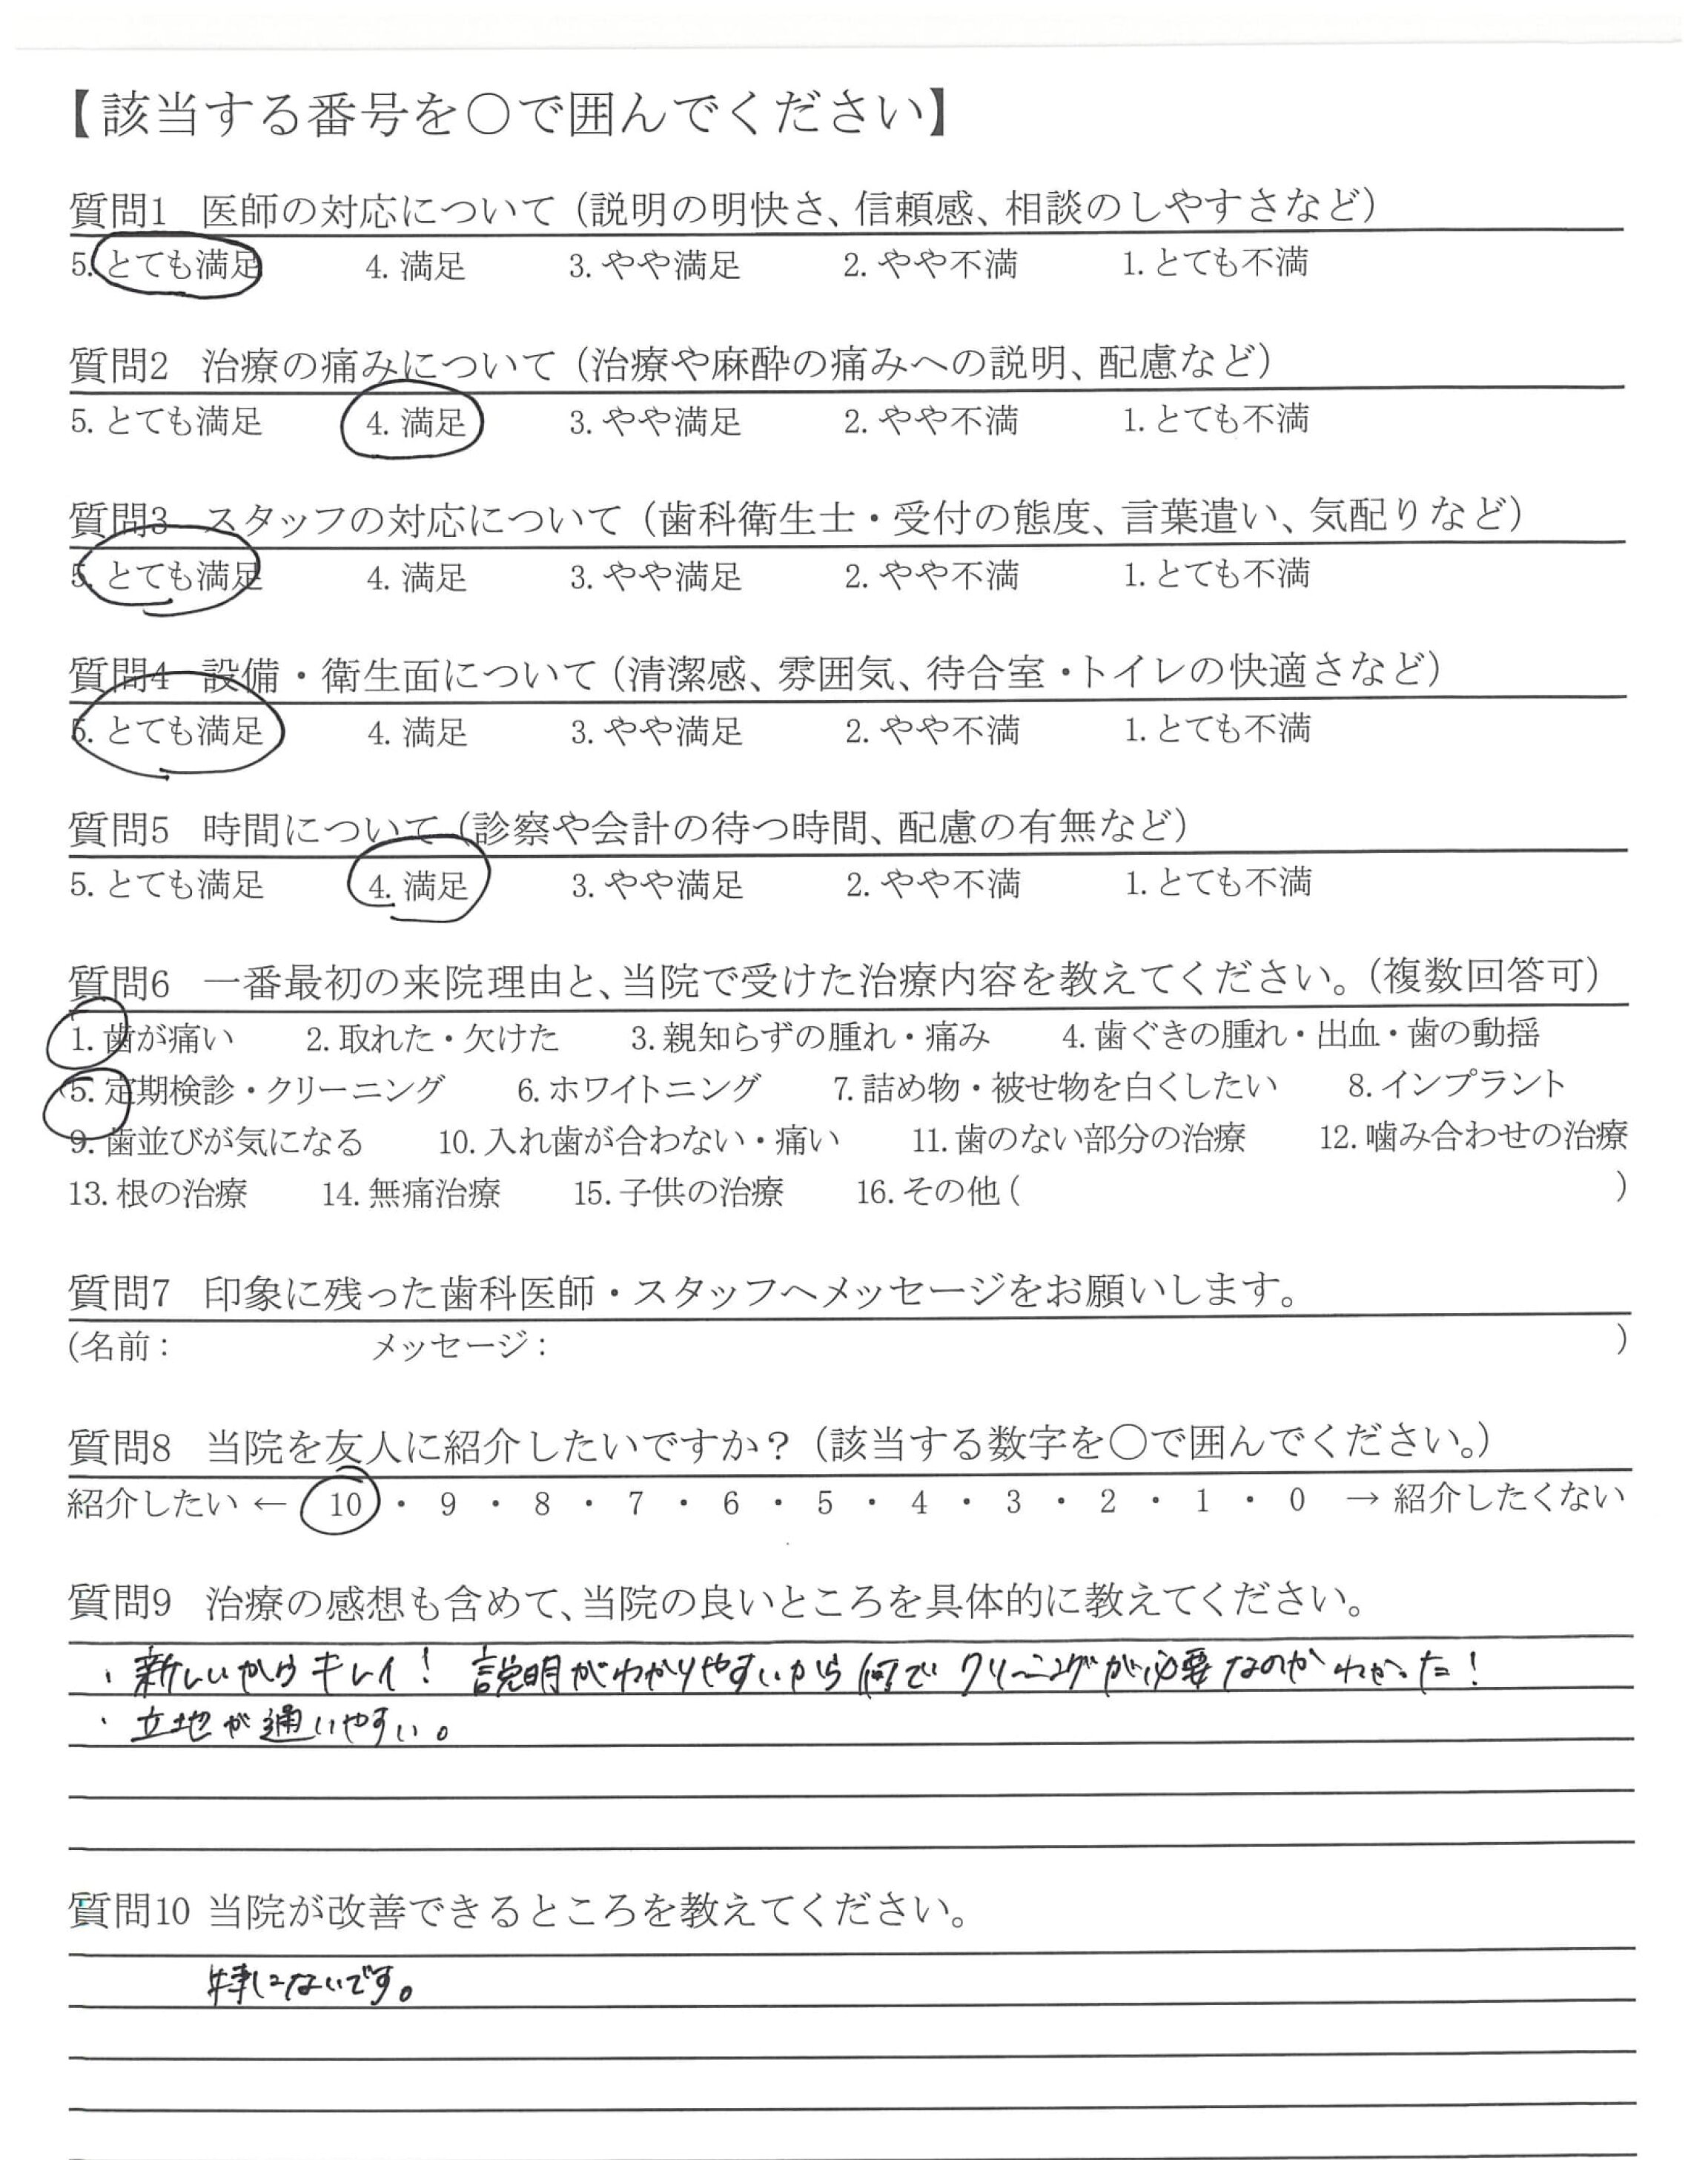 【該当する番号を○で囲んでください】
質問1 医師の対応について（説明の明快さ、信頼感、相談のしやすさなど）
5. とても満足 4. 満足 3. やや満足 2. やや不満 1. とても不満
質問2 治療の痛みについて（治療や麻酔の痛みへの説明、配慮など）
5. とても満足 4. 満足 3. やや満足 2. やや不満 1. とても不満
質問3 スタッフの対応について（歯科衛生士・受付の態度、言葉遣い、気配りなど）
5. とても満足 4. 満足 3. やや満足 2. やや不満 1. とても不満
質問4 設備・衛生面について（清潔感、雰囲気、待合室・トイレの快適さなど）
5. とても満足 4. 満足 3. やや満足 2. やや不満 1. とても不満
質問5 時間について（診察や会計の待つ時間、配慮の有無など）
5. とても満足 4. 満足 3. やや満足 2. やや不満 1. とても不満
質問6 一番最初の来院理由と、当院で受けた治療内容を教えてください。（複数回答可）
1. 歯が痛い 2. 取れた・欠けた 3. 親知らずの腫れ・痛み 4. 歯ぐきの腫れ・出血・歯の動揺
5. 定期検診・クリーニング 6. ホワイトニング 7. 詰め物・被せ物を白くしたい 8. インプラント
9. 歯並びが気になる 10. 入れ歯が合わない・痛い 11. 歯のない部分の治療 12. 噛み合わせの治療
13. 根の治療 14. 無痛治療 15. 子供の治療 16. その他（ ）
質問7 印象に残った歯科医師・スタッフへメッセージをお願いします。
（名前： メッセージ： ）
質問8 当院を友人に紹介したいですか？（該当する数字を○で囲んでください。）
紹介したい ← 10 ・ 9 ・ 8 ・ 7 ・ 6 ・ 5 ・ 4 ・ 3 ・ 2 ・ 1 ・ 0 → 紹介したくない
質問9 治療の感想も含めて、当院の良いところを具体的に教えてください。
・新しいからキレイ！ 説明がわかりやすいから何でクリーニングが必要なのかわかった！
・立地が通いやすい。
質問10 当院が改善できるところを教えてください。
特にないです。